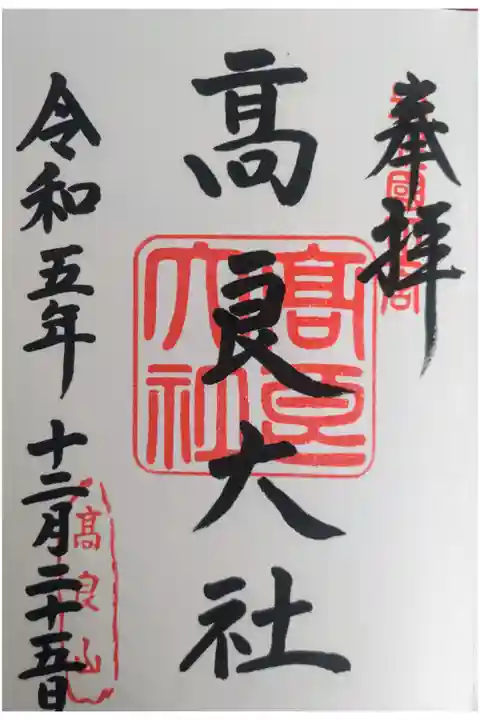 奉拝
髙良大社
髙良大社
令和五年十二月二十五日
髙良山